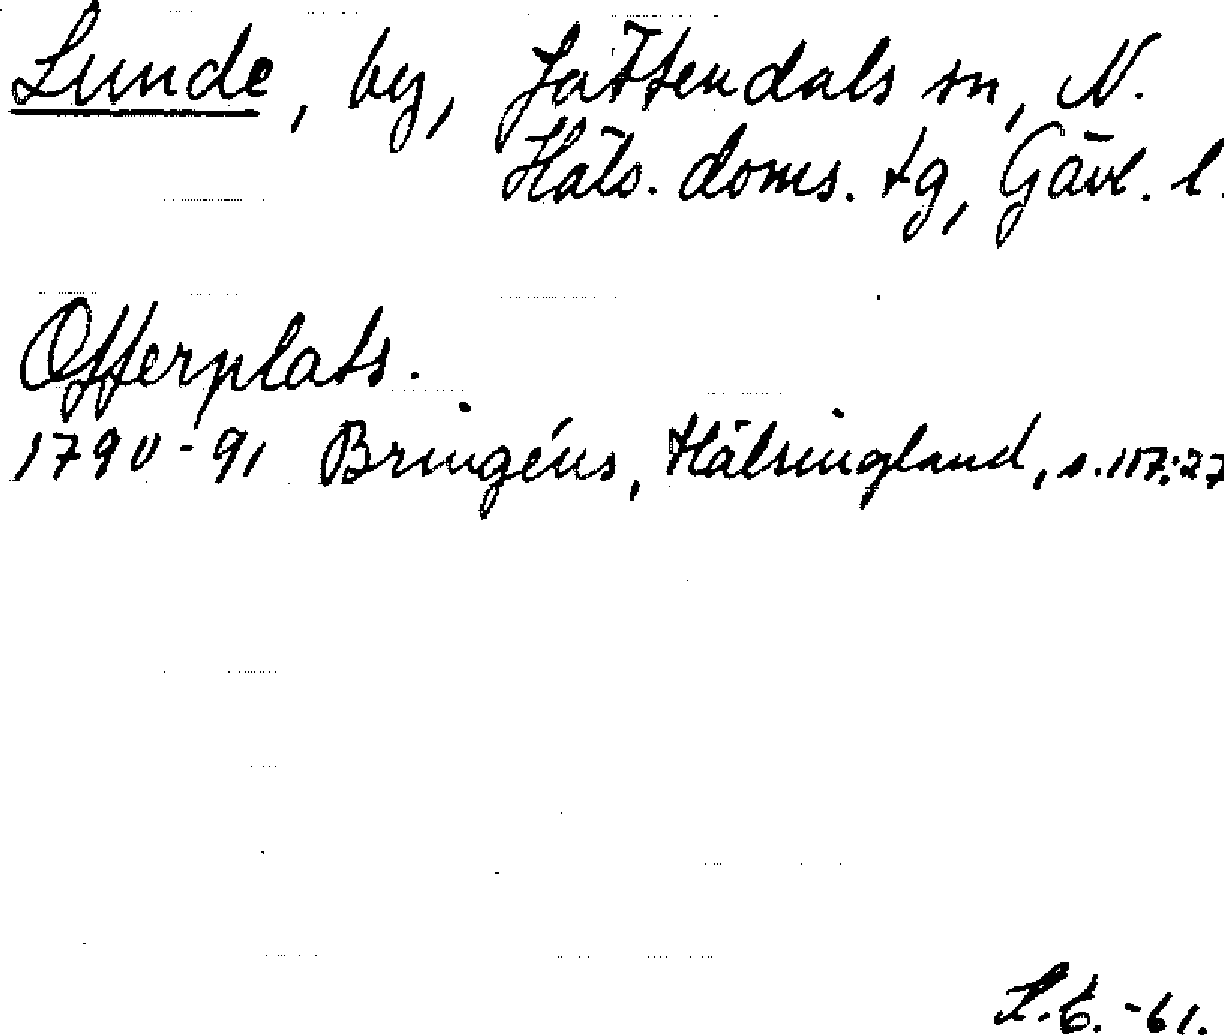 Lunde, by, Jättendals sn, N.
Häls. doms. tg, Gävl. l.
Offerplats.
1790-91 Bringéus, Hälsingland, s. 117:27
L.E. -61.